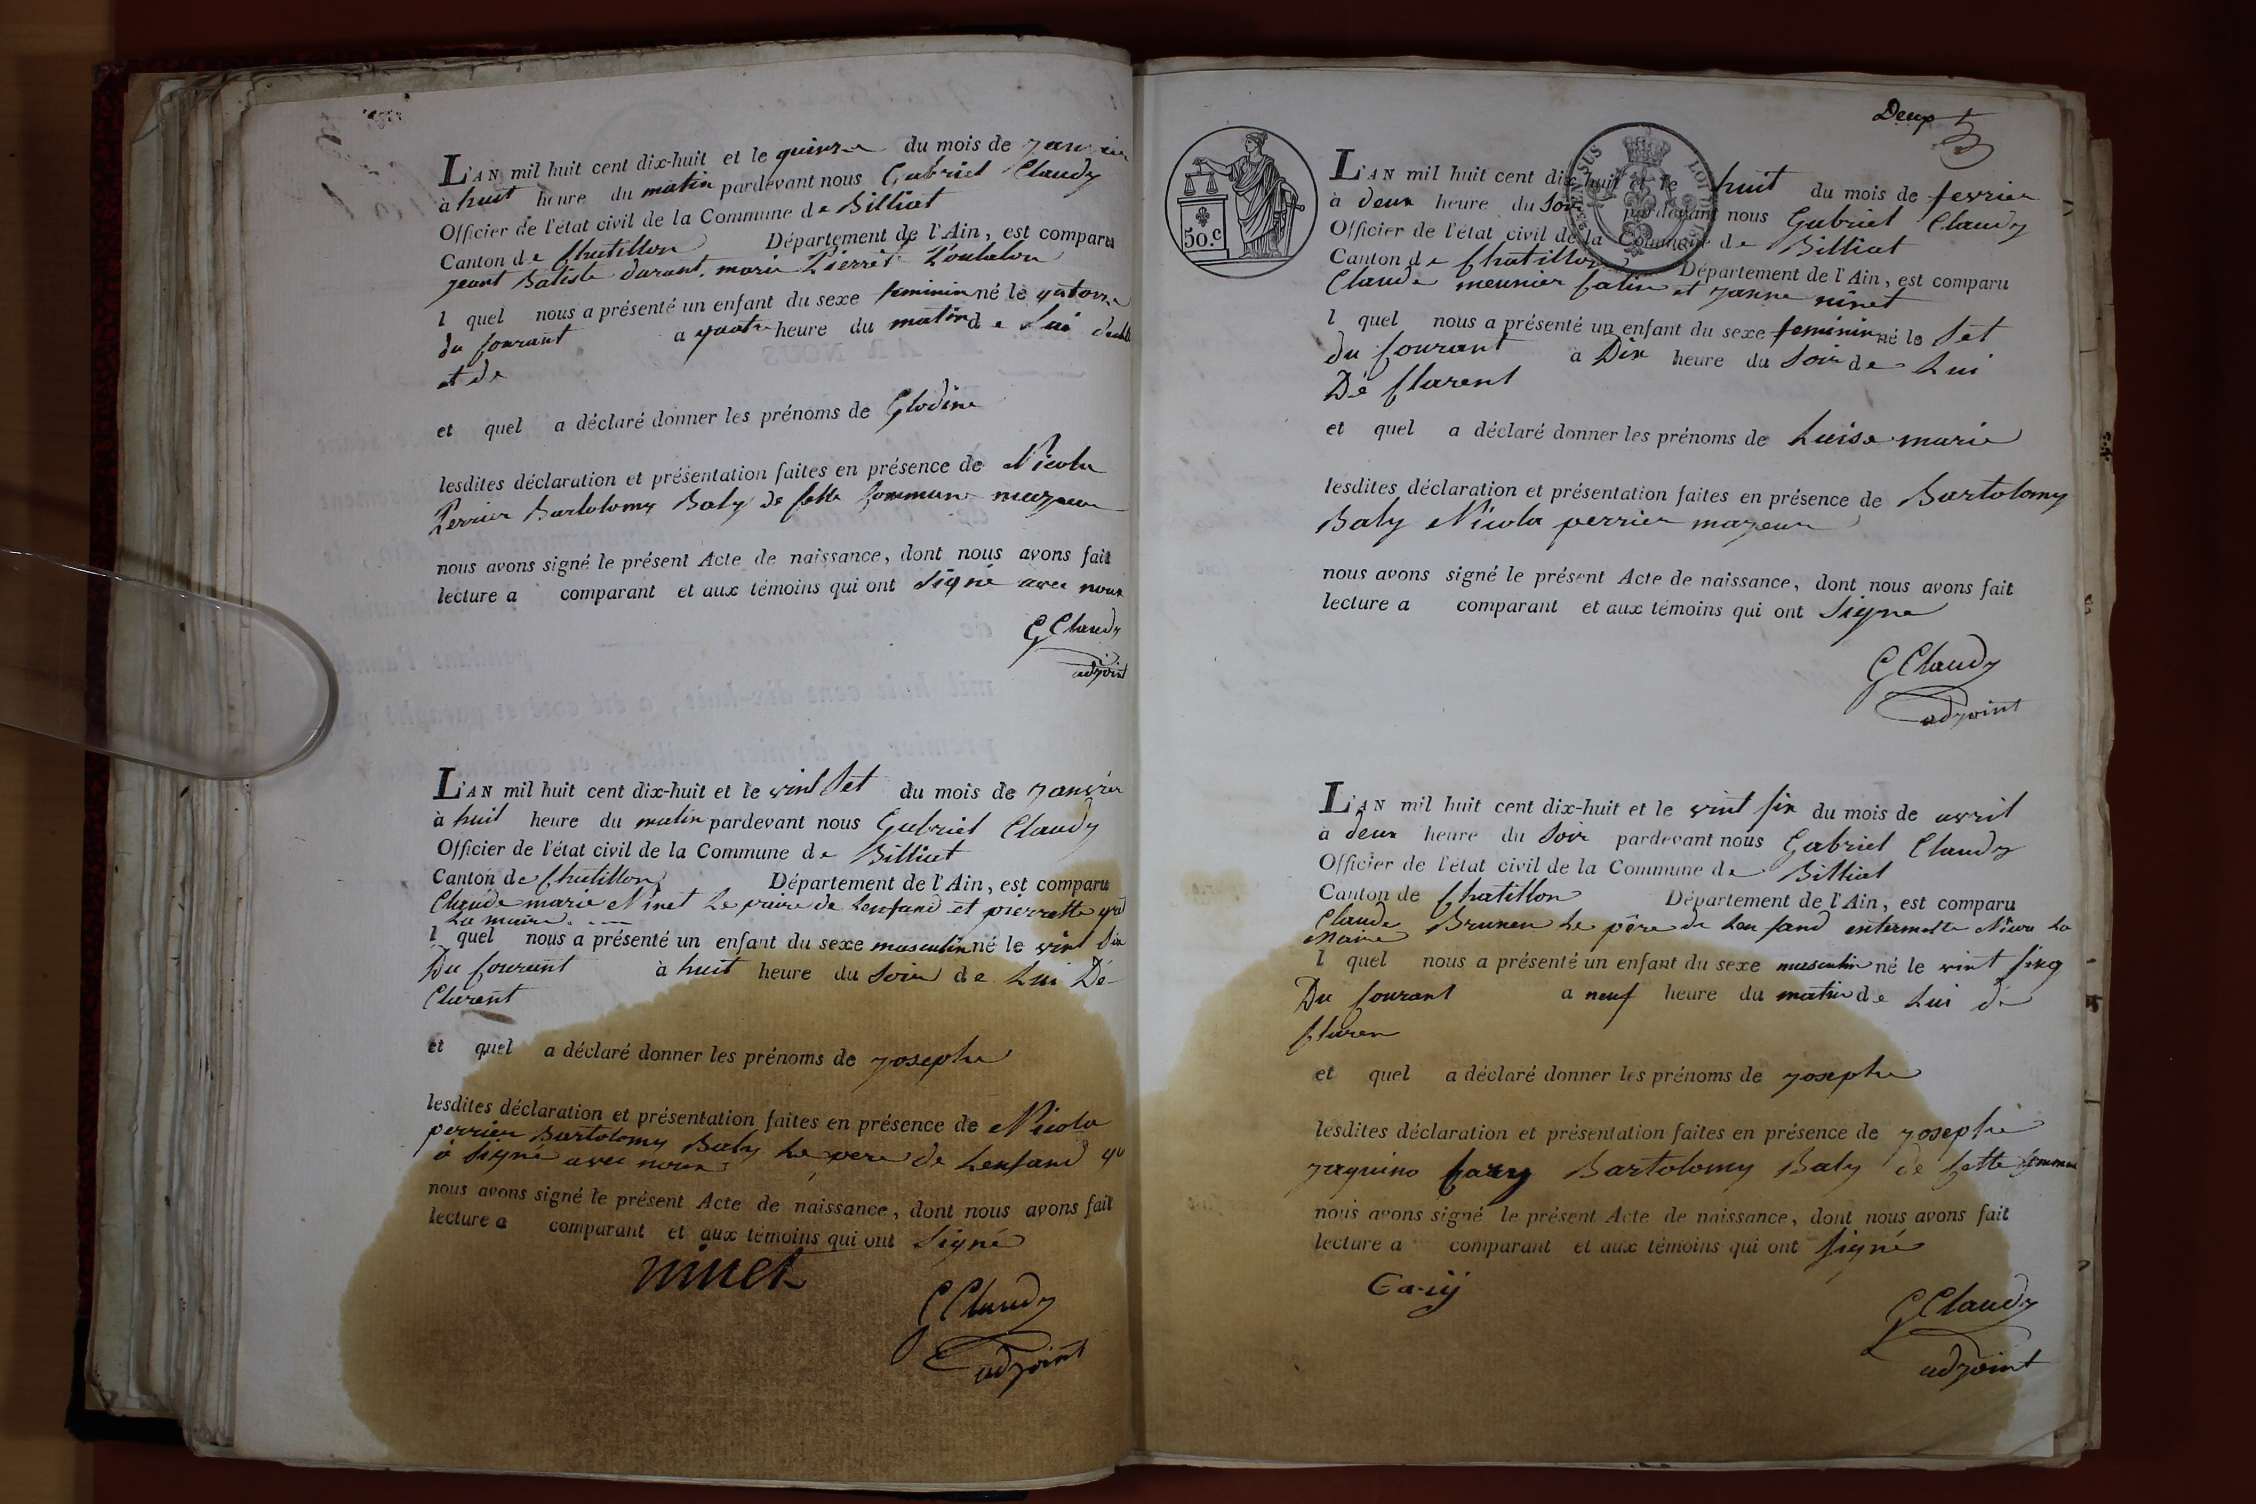 L'AN mil huit cent dix-huit et le quinze du mois de janvier
à huit heure du matin pardevant nous Gabriel Claudy
Officier de l'état civil de la Commune de Billiat
Canton de Chatillon Département de l'Ain, est comparu
jeant Batiste durant. marie Pierret
l quel nous a présenté un enfant du sexe feminin né le
du courant a quatre heure du matin de Lui
et de
et quel a déclaré donner les prénoms de Glodine
lesdites déclaration et présentation faites en présence de Nicola
Perrier Bartolomy Baly de sette commune mazeur
nous avons signé le présent Acte de naissance, dont nous avons fait
lecture a comparant et aux témoins qui ont Signé avec nous
G Claudy
adjoint
L'AN mil huit cent dix-huit et le vint Set du mois de janvier
à huit heure du matin pardevant nous Gabriel Claudy
Officier de l'état civil de la Commune de Billiat
Canton de Chatillon Département de l'Ain, est comparu
Claude marie Ninet Le de Lenfand et pierrette
La maire
l quel nous a présenté un enfant du sexe masculin né le vint Six
Du courant à huit heure du Soir de Lui Dé
Clarent
et quel a déclaré donner les prénoms de josephe
lesdites déclaration et présentation faites en présence de Nicola
perrier Bartolomy Baly Le pere de Lenfand qu
a Signé avec nous
nous avons signé le présent Acte de naissance, dont nous avons fait
lecture a comparant et aux témoins qui ont Signé
ninet
G Claudy
adjoint
Deux
50.c
L'AN mil huit cent dix-huit et le huit du mois de fevrier
à deux heure du Soir pardevant nous Gabriel Claudy
Officier de l'état civil de la Commune de Billiat
Canton de Chatillon Département de l'Ain, est comparu
Claude meunier et janne ninet
l quel nous a présenté un enfant du sexe feminin né le Set
du courant a Dix heure du Soir de Lui
Dé Clarent
et quel a déclaré donner les prénoms de Luise marie
lesdites déclaration et présentation faites en présence de Bartolomy
Baly Nicola perrier mazeur
nous avons signé le présent Acte de naissance, dont nous avons fait
lecture a comparant et aux témoins qui ont Signe
G Claudy
adjoint
L'AN mil huit cent dix-huit et le vint six du mois de avril
à deux heure du Soir pardevant nous Gabriel Claudy
Officier de l'état civil de la Commune de Billiat
Canton de Chatillon Département de l'Ain, est comparu
Claude Brunen Le père de Len fand La
maire
l quel nous a présenté un enfant du sexe masculin né le vint sinq
Du courant a neuf heure du matin de Lui dé
Claren
et quel a déclaré donner les prénoms de josephe
lesdites déclaration et présentation faites en présence de josephe
jaquino Bartolomy Baly de sette commune
nous avons signé le présent Acte de naissance, dont nous avons fait
lecture a comparant et aux témoins qui ont signé
G Claudy
adjoint